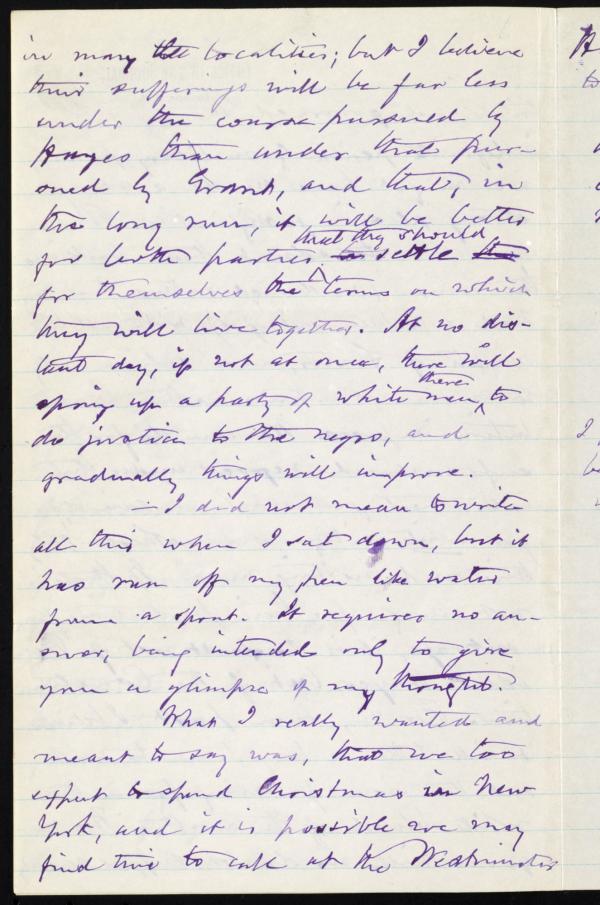 in many localities; but I believe
their sufferings will be far less
under the course pursued by
Hayes than under that pur-
sued by Grant, and that, in
the long run, it will be better
that they should
for both parties to settle
for themselves the terms on which
they will live together. At no dis-
tant day, if not at once, there will
there
spring up a party of white men, to
do justice to the negro, and
gradually things will improve.
— I did not mean to write
all this when I sat down, but it
has run off my pen like water
from a spout. It requires no an-
swer, being intended only to give
you a glimpse of my thoughts.
What I really wanted and
meant to say was, that we too
expect to spend Christmas in New
York, and it is possible we may
find time to call at the Westminster